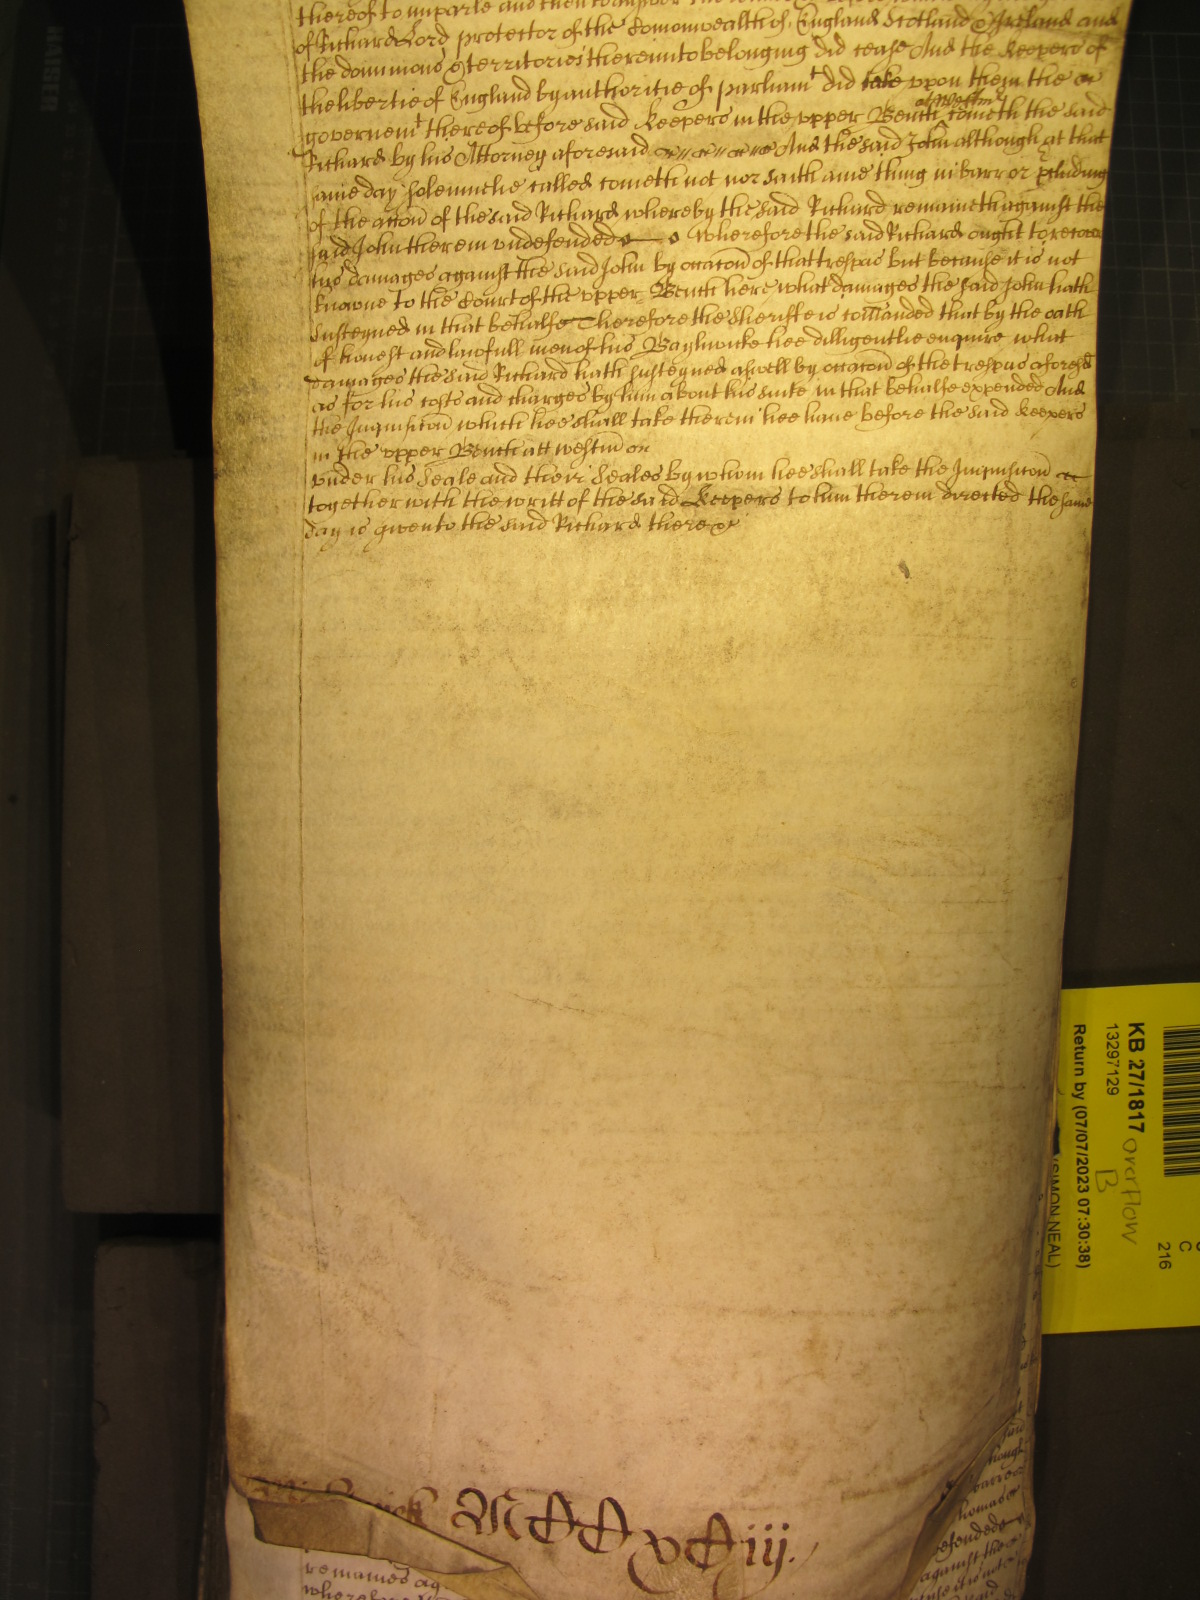 thereof to imparle and then to
of Richard Lord protector of the Comonwealth of England Scotland & Ireland and
the dominions & territories thereunto belonging did cease And the keepers of
the libertie of England by authoritie of parliamt did take vpon them the
governemt thereof before said Keepers in the vpper Bench at Westmr cometh the said
Richard by his Attorney aforesaid And the said John although at that
same day solemnelie called cometh not nor saith anie thing in barr or pcluding
of the accon of the said Richard whereby the said Richard remaineth against the
said John therein vndefended Wherefore the said Richard ought to recover
his damages against the said John by occacon of that trespas but because it is not
knowne to the Court of the vpper Bench here what damages the said John hath
susteyned in that behalfe Therefore the sheriffe is comanded that by the oath
of honest and lawfull men of his Baylywicke hee dilligentlie enquire what
damages the said Richard hath susteyned aswell by occacon of the trespas aforesd
as for his costs and charges by him about his suite in that behalfe expended And
the Inquisicon which hee shall take therein hee have before the said keepers
in the vpper Bench att westm on
vnder his seale and their seales by whom hee shall take the Inquisicon
together with the writt of the said Keepers to him therein directed the same
day is given to the said Richard there &c
KB 27/1817 overflow
B
13297129
Return by (07/07/2023 07:30:38)
(SIMON NEAL)
C
216
MCCxCiij.
remaines ag
said
hough
barre or
Thomas
efended
against the